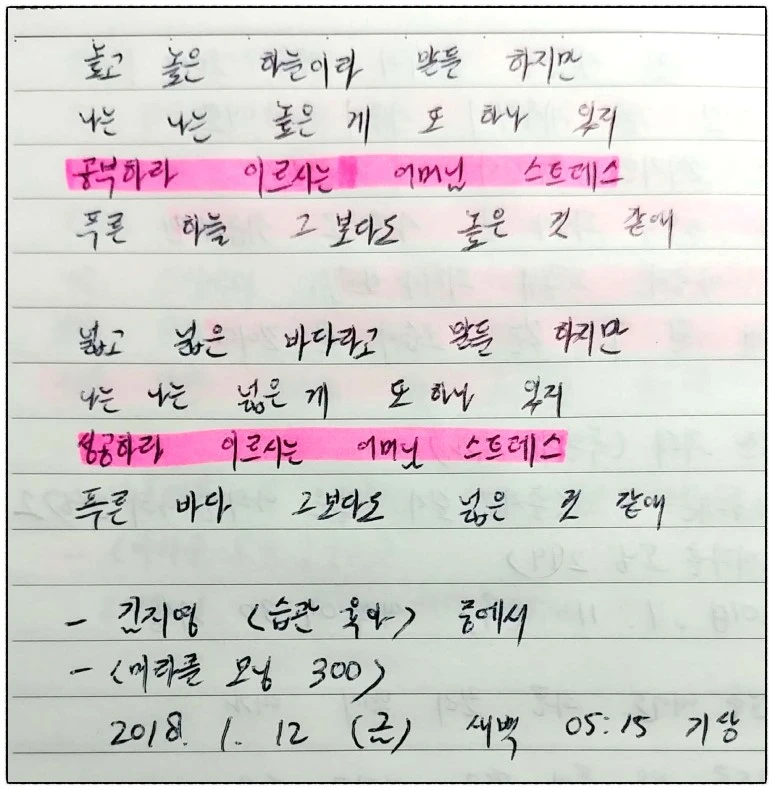 높고 높은 하늘이라 말들 하지만
나는 나는 높은 게 또 하나 있지
공부하라 이르시는 어머님 스트레스
푸른 하늘 그보다도 높은 것 같애
넓고 넓은 바다라고 말들 하지만
나는 나는 넓은 게 또 하나 있지
성공하라 이르시는 어머님 스트레스
푸른 바다 그보다도 넓은 것 같애
- 김지영 <습관 육아> 중에서
- <미라클 모닝 300>
2018. 1. 12 (금) 새벽 05:15 기상